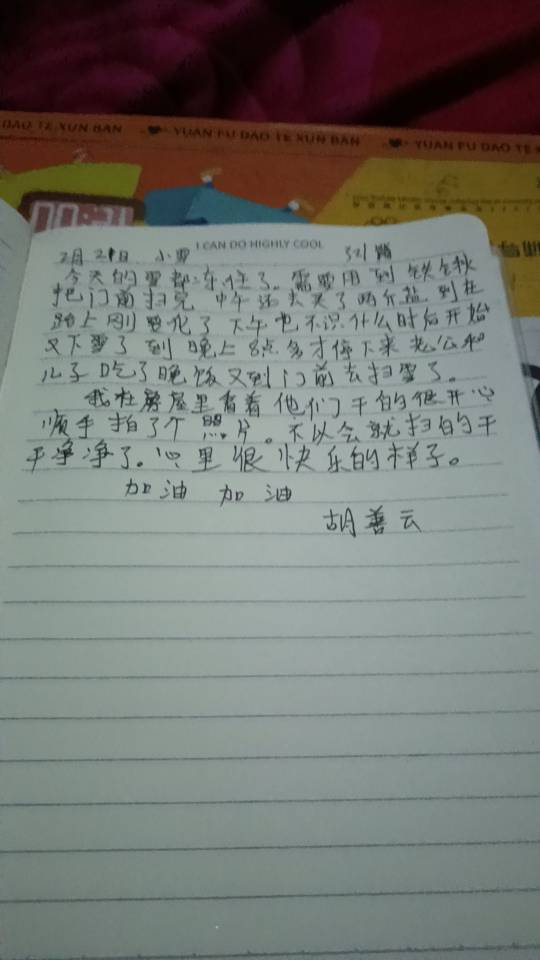 DAO TE XUN BAN YUAN FU DAO TE XUN BAN YUAN FU DAO TE X
00:21
I CAN DO HIGHLY COOL
2月21日 小雪 321篇
今天的雪都冻住了。需要用到铁锹
把门前扫完 中午还去买了两斤盐 到在
路上刚要化了 下午也不识什么时后开始
又下雪了 到晚上8点多才停下来 老公和
儿子吃了晚饭又到门前去扫雪了。
我在房屋里看着他们干的很开心
顺手拍了个照片。不以会就扫的干
干净净了。心里很快乐的样子。
加油 加油
胡善云